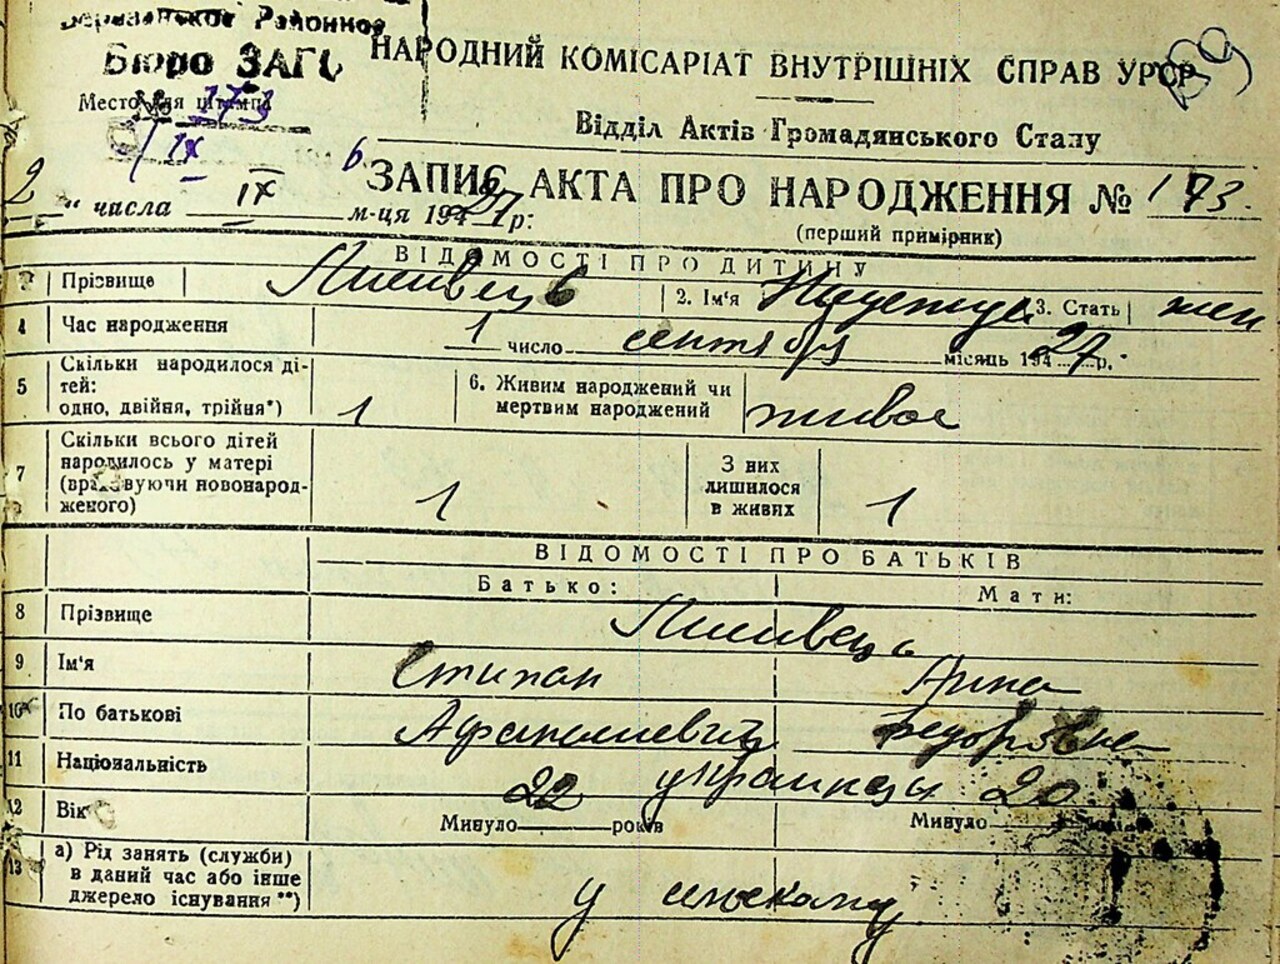 Районное
Бюро ЗАГС
НАРОДНИЙ КОМІСАРІАТ ВНУТРІШНІХ СПРАВ УРСР
Место для штампа
№ 173
IX
Відділ Актів Громадянського Стану
ЗАПИС АКТА ПРО НАРОДЖЕННЯ № 173.
2 " числа IX м-ця 194 27 р:
(перший примірник)
ВІДОМОСТІ ПРО ДИТИНУ
Прізвище 2. Ім'я Надежда 3. Стать жен
4 Час народження 1 число сентября місяць 194 27 р.
5 Скільки народилося ді-
тей:
одно, двійня, трійня*) 1 6. Живим народжений чи
мертвим народжений живое
7 Скільки всього дітей
народилось у матері
(враховуючи новонарод-
женого) 1 З них
лишилося
в живих 1
ВІДОМОСТІ ПРО БАТЬКІВ
Батько: Мати:
8 Прізвище
9 Ім'я Степан Анна
10 По батькові Афанасиевич Федоровна
11 Національність украинцы
12 Вік 22 Минуло років 20 Минуло років
13 а) Рід занять (служби)
в даний час або інше
джерело існування **) у сельскому